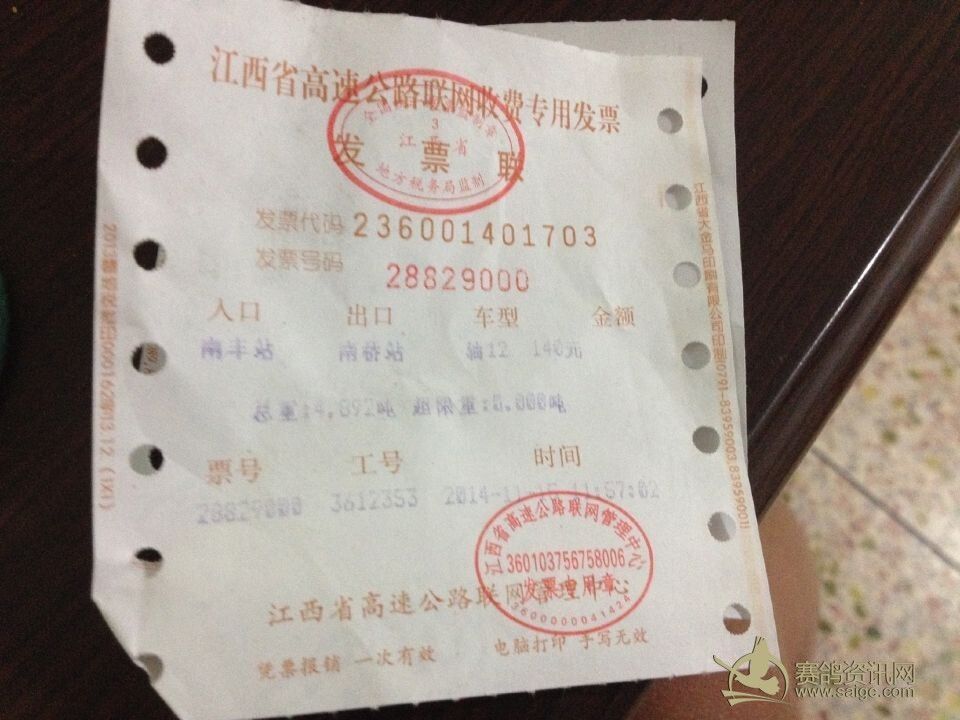 江西省高速公路联网收费专用发票
发票联
江西省
地方税务局监制
发票代码 236001401703
发票号码 28829000
入口 出口 车型 金额
南丰站 南桥站 轴12 140元
总重:4.892吨 超限重:0.000吨
票号 工号 时间
28829000 3612353 2014-11-15 11:57:02
江西省高速公路联网管理中心
360103756758006
发票专用章
3600000041424
江西省高速公路联网管理中心
凭票报销 一次有效 电脑打印 手写无效
江西省大金马印刷有限公司印制0791-83959003.83959001
赛鸽资讯网
www.saigc.com